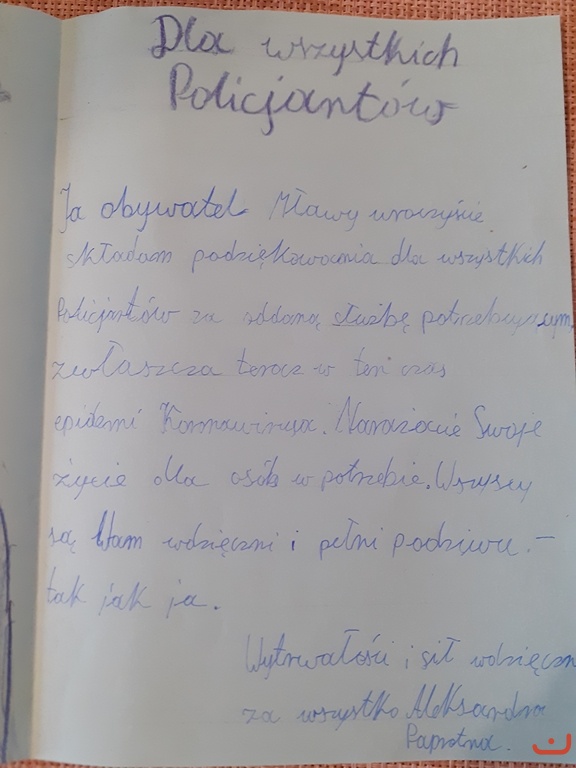 Dla wszystkich
Policjantów
Ja obywatel Mławy uroczyście
składam podziękowania dla wszystkich
Policjantów za oddaną służbę potrzebującym,
zwłaszcza teraz w ten czas
epidemi Koronawirusa. Narażacie Swoje
życie dla osób w potrzebie. Wszyscy
są Wam wdzięczni i pełni podziwu. –
tak jak ja.
Wytrwałości i sił wdzięczn
za wszystko Aleksandra